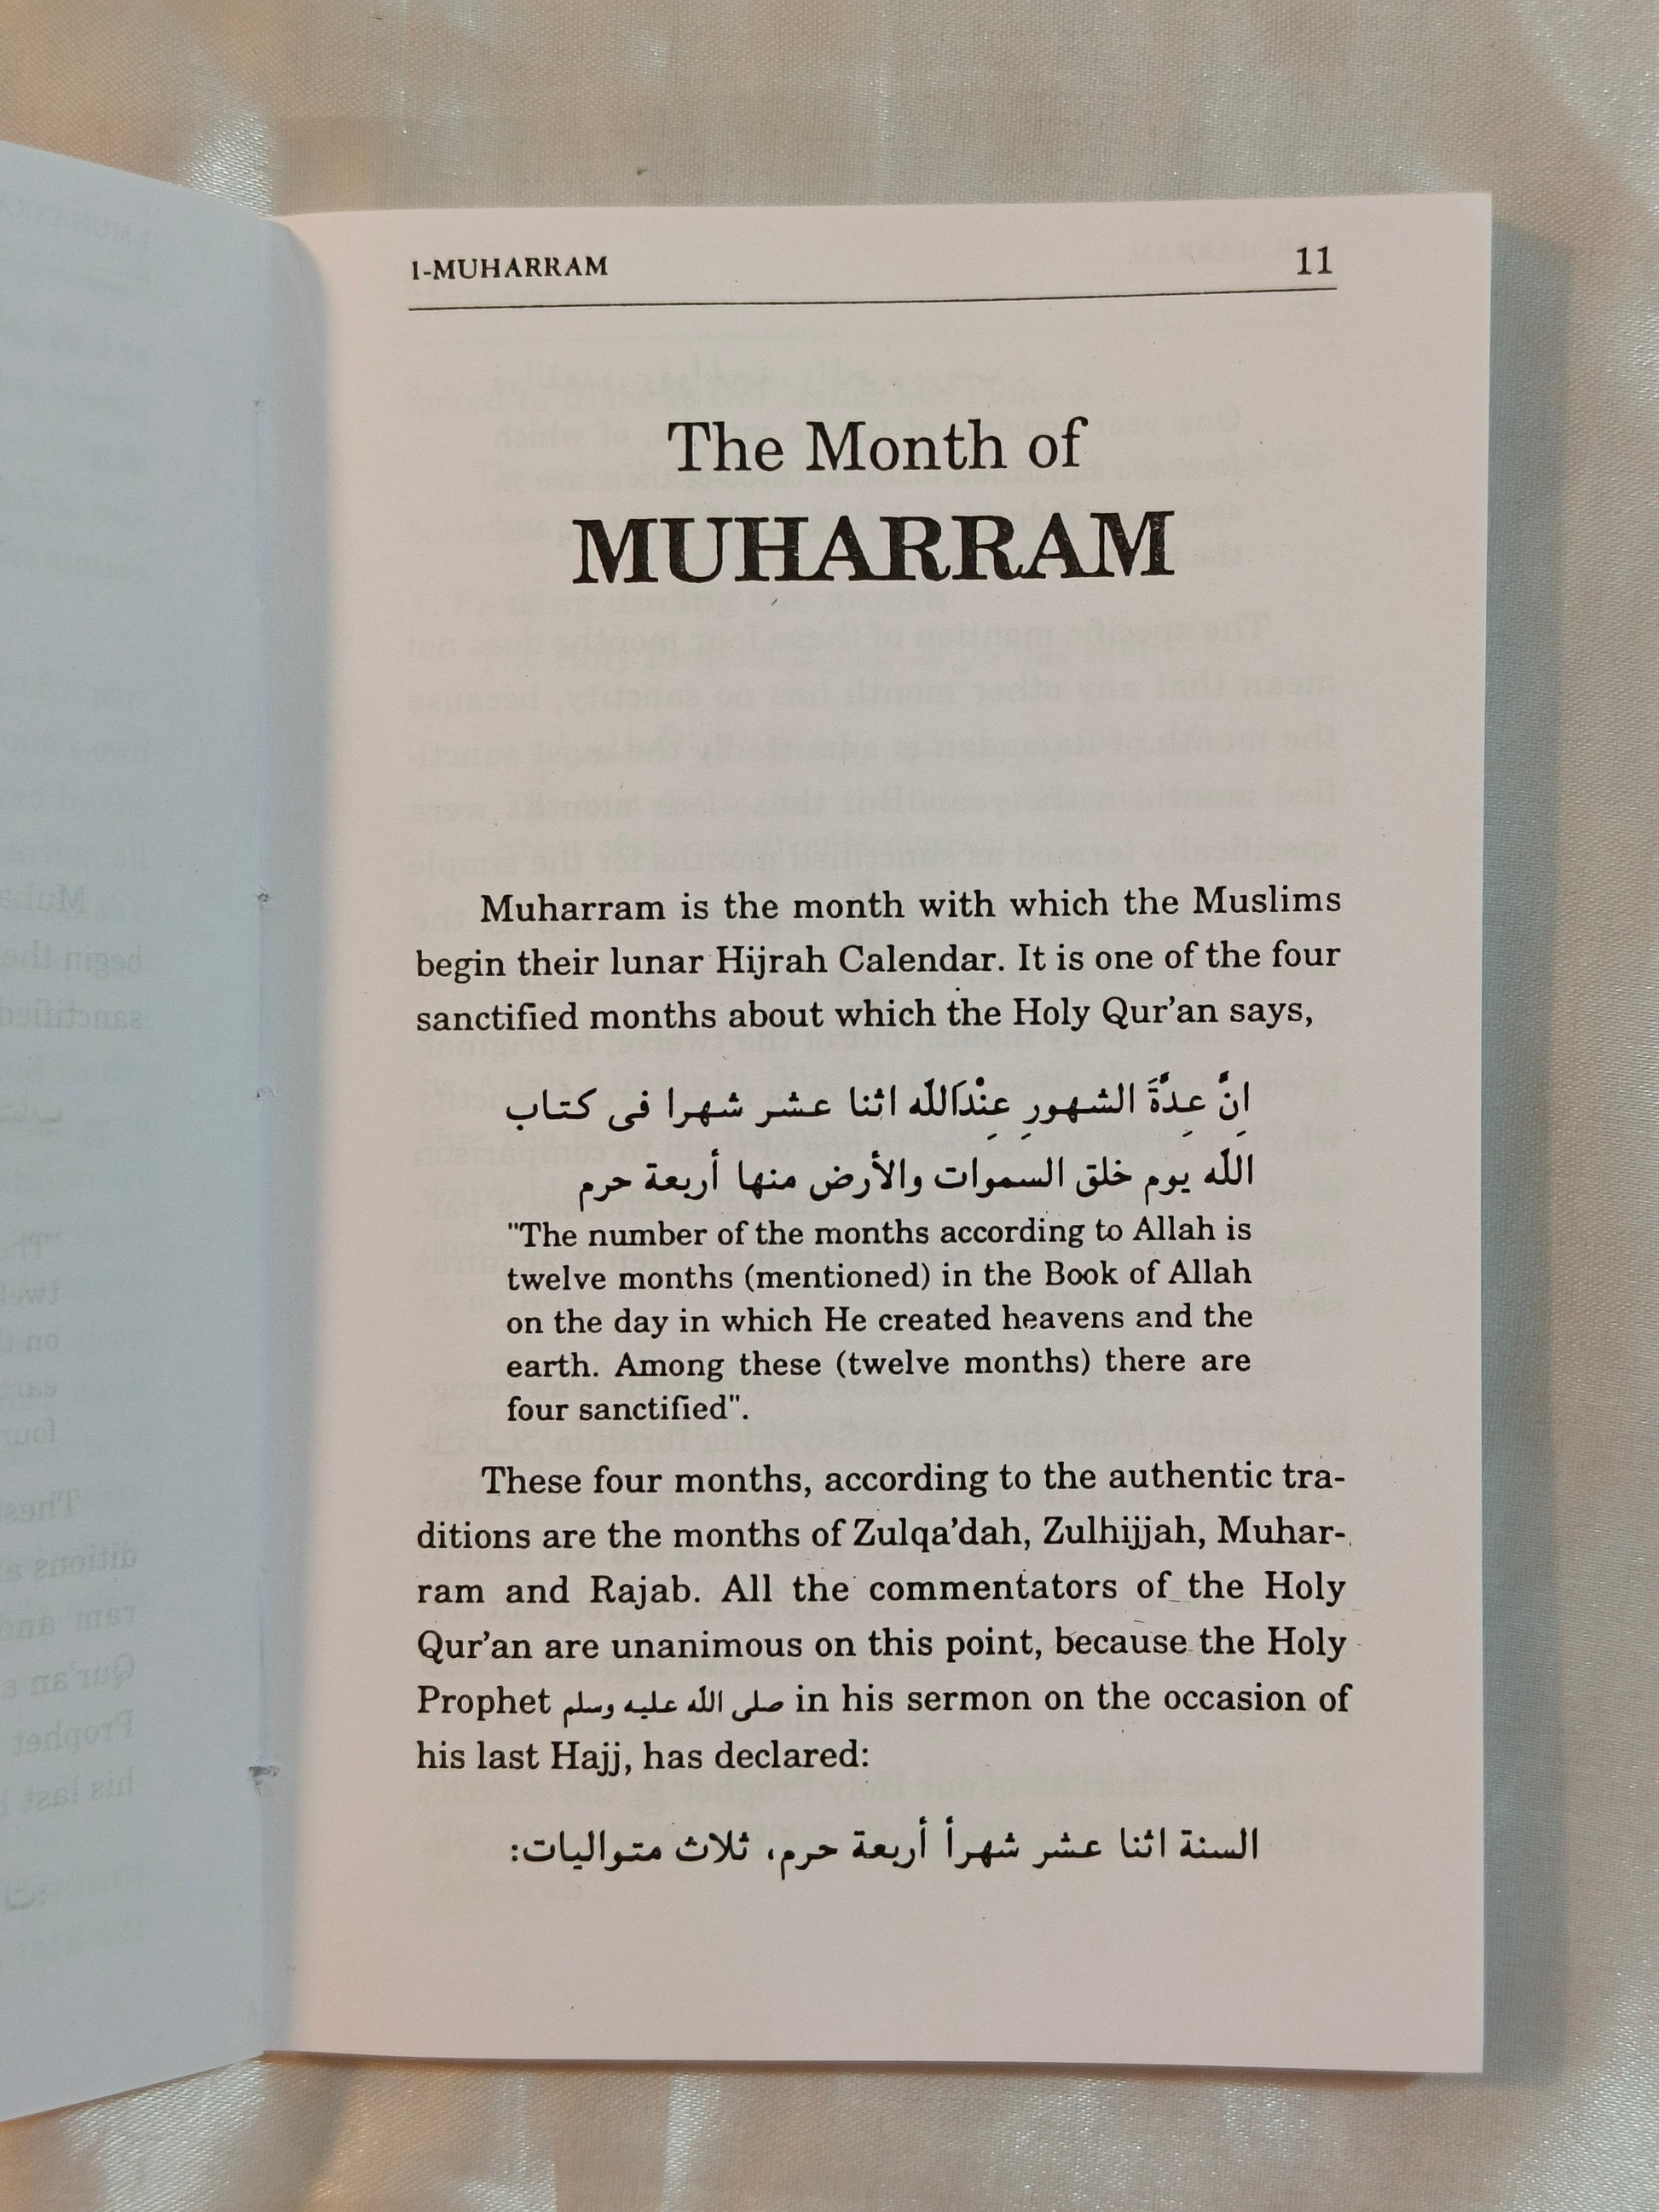 1-MUHARRAM 11
The Month of
MUHARRAM
Muharram is the month with which the Muslims
begin their lunar Hijrah Calendar. It is one of the four
sanctified months about which the Holy Qur'an says,
اِنَّ عِدَّةَ الشهورِ عِنْدَالله اثنا عشر شهرا فى كتاب
الله يوم خلق السموات والأرض منها أربعة حرم
"The number of the months according to Allah is
twelve months (mentioned) in the Book of Allah
on the day in which He created heavens and the
earth. Among these (twelve months) there are
four sanctified".
These four months, according to the authentic tra-
ditions are the months of Zulqa'dah, Zulhijjah, Muhar-
ram and Rajab. All the commentators of the Holy
Qur'an are unanimous on this point, because the Holy
Prophet صلى الله عليه وسلم in his sermon on the occasion of
his last Hajj, has declared:
السنة اثنا عشر شهرأ أربعة حرم، ثلاث متواليات: